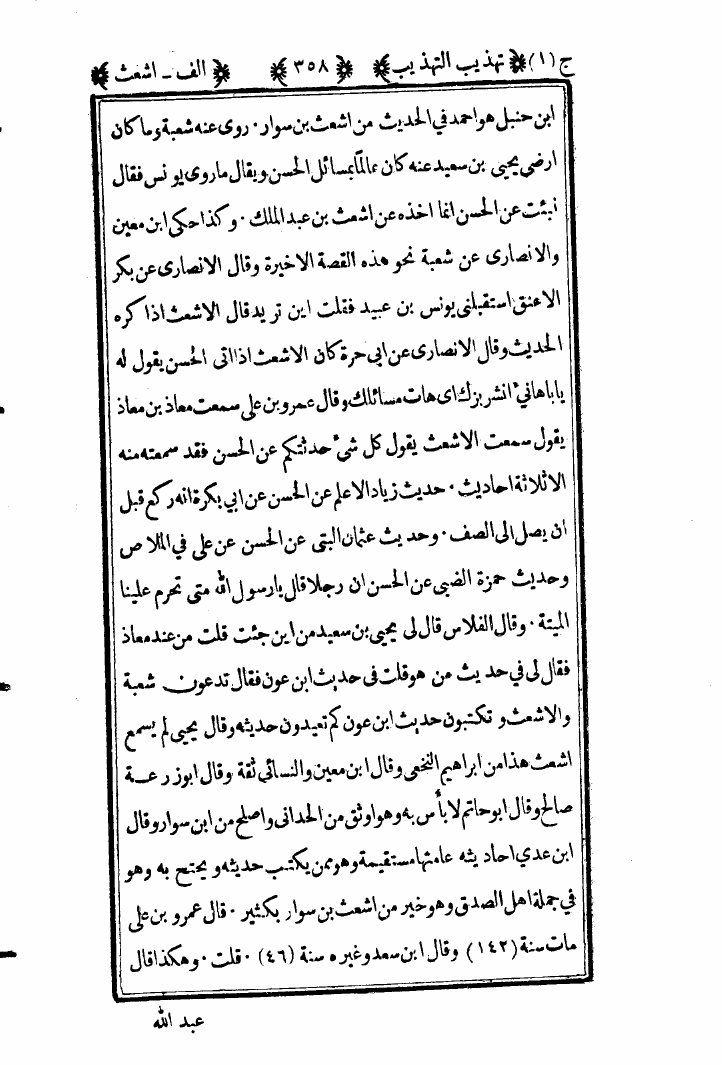 ج(١) تهذيب التهذيب ٣٥٨ الف - اشعث
ابن حنبل هو احمد في الحديث من اشعث بن سوار · روى عنه شعبة وما كان
ارضى يحيى بن سعيد عنه كان عالما بمسائل الحسن ويقال ما روى يونس فقال
نبئت عن الحسن انما اخذه عن اشعث بن عبد الملك · وكذا حكى ابن معين
والانصارى عن شعبة نحو هذه القصة الاخيرة وقال الانصارى عن بكر
الاعنق استقبلنى يونس بن عبيد فقلت اين تريد قال الاشعث اذاكره
الحديث وقال الانصارى عن ابى حرة كان الاشعث اذا اتى الحسن يقول له
يا ابا هانىء انشر بزك اى هات مسائلك وقال عمرو بن على سمعت معاذ بن معاذ
يقول سمعت الاشعث يقول كل شىء حدثتكم عن الحسن فقد سمعته منه
الا ثلاثة احاديث · حديث زياد الاعلم عن الحسن عن ابي بكرة انه ركع قبل
ان يصل الى الصف · وحديث عثمان البتى عن الحسن عن على في الملاص
وحديث حمزة الضبى عن الحسن ان رجلا قال يا رسول الله متى تحرم علينا
الميتة · وقال الفلاس قال لى يحيى بن سعيد من اين جئت قلت من عند معاذ
فقال لى في حديث من هو قلت فى حديث ابن عون فقال تدعون شعبة
والاشعث و تكتبون حديث ابن عون كم تعيدون حديثه وقال يحيى لم يسمع
اشعث هذا من ابراهيم النخعى وقال ابن معين والنسائي ثقة وقال ابو زرعة
صالح وقال ابو حاتم لا بأس به وهو اوثق من الحدانى واصلح من ابن سوار وقال
ابن عدي احاديثه عامتها مستقيمة وهو ممن يكتب حديثه ويحتج به وهو
في جملة اهل الصدق وهو خير من اشعث بن سوار بكثير · قال عمرو بن على
مات سنة (١٤٢) وقال ابن سعد وغيره سنة (٤٦) · قلت · وهكذا قال
عبد الله